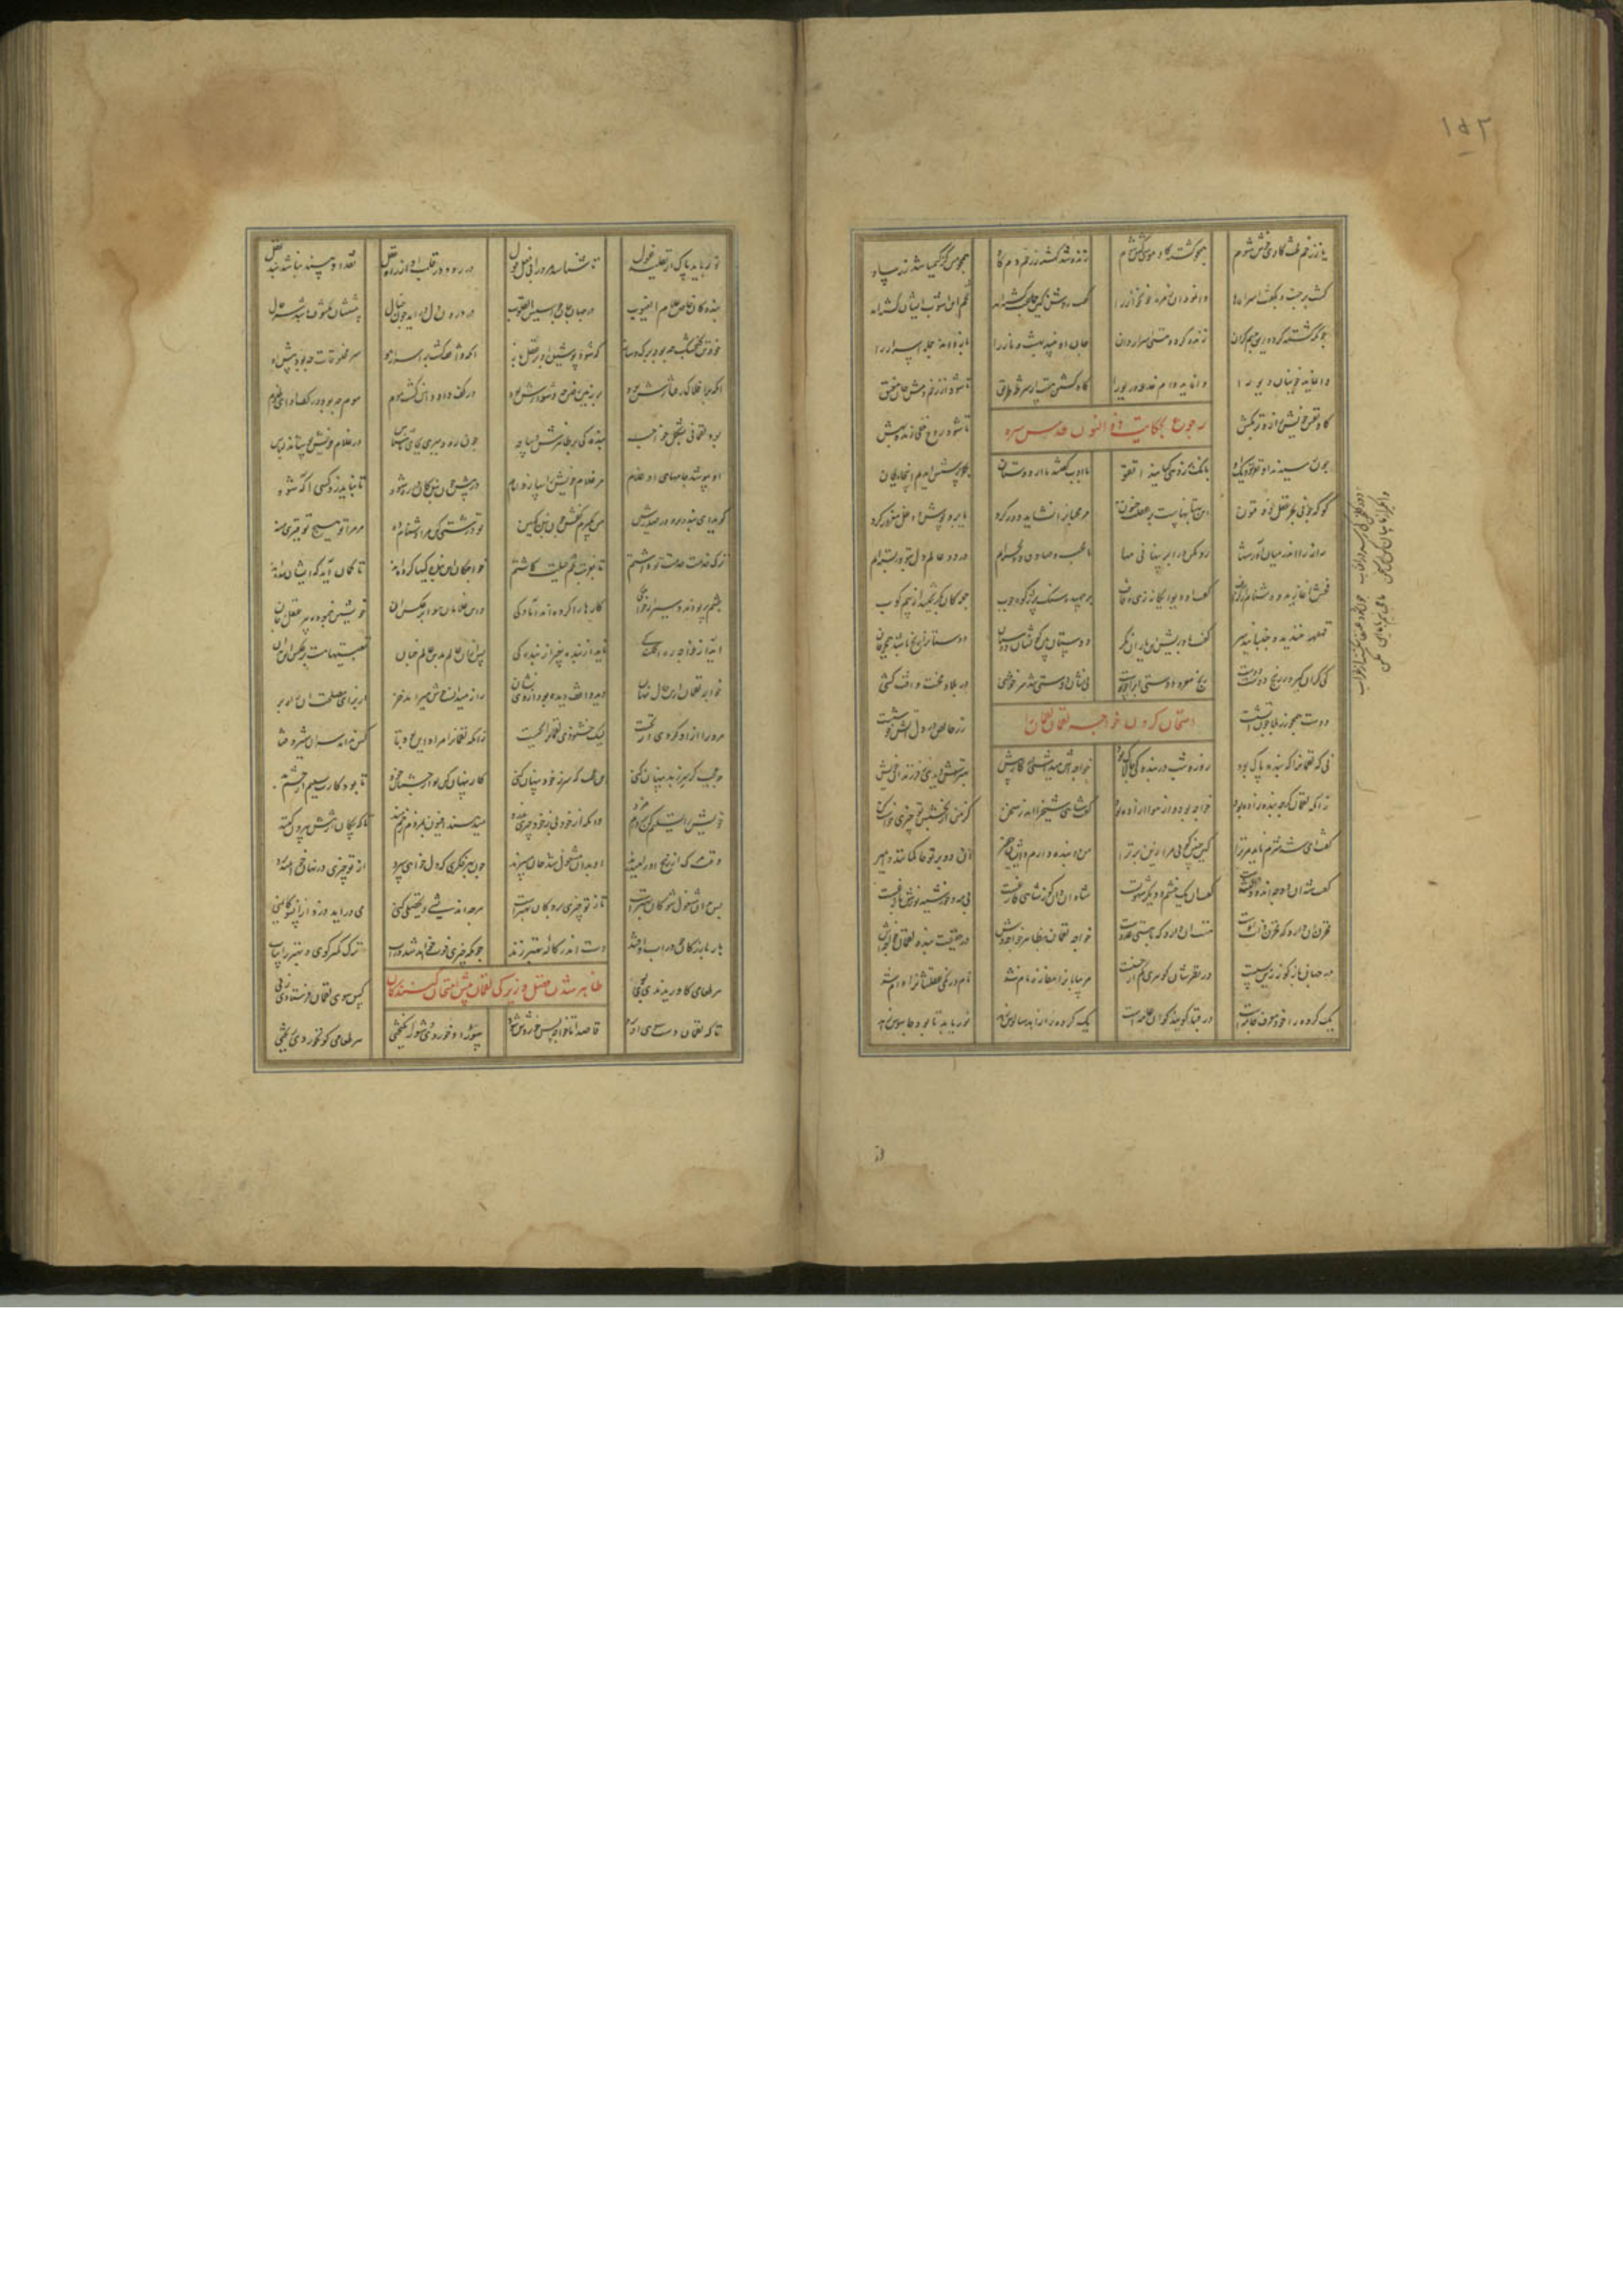 ۱۵۲
یا ز زخم لخت گاوی خوش شوم
همچو کشته گاو موسی گش شوم
زنده شد کشته ز زخم دم گاو
همچو مس از کیمیا شد زر ساو
کشته برجست و بگفت اسرار را
وا نمود آن زمره خونخوار را
گفت روشن کین جماعت کشته اند
تخم این آشوب ایشان کشته اند
چونکه کشته گردد این جسم گران
زنده گردد هستی اسرار دان
جان او بیند بهشت و نار را
باز داند جمله اسرار را
وا نماید خونیان دیو را
وا نماید دام خدعه و ریو را
گاو کشتن هست از شرط طریق
تا شود از زخم دمش جان مفیق
گاو نفس خویش را زوتر بکش
تا شود روح خفی زنده و بهش
رجوع بحکایت ذو النون قدس سره
چون رسیدند آن نفر نزدیک او
بانگ بر زد هی کیانید اتقوا
با ادب گفتند ما از دوستان
بهر پرسش آمدیم اینجا بجان
کو که چونی بحر عقل ذو فنون
این چه بهتانست بر عقلت جنون
مر محبان را نشاید دور کرد
یا بروپوش و دغل مغرور کرد
راز را اندر میان آور شها
رو مکن در ابر پنهانی مها
ما محب و صادق و دل خسته ایم
در دو عالم دل بتو در بسته ایم
فحش آغازید و دشنام از گزاف
گفت او دیوانگانه زی و قاف
برجهید و سنگ پران کرد و چوب
جملگان بگریختند از بیم کوب
قهقهه خندید و جنبانید سر
گفت باد ریش این یاران نگر
دوستان بین کو نشان دوستان
دوستان را رنج باشد همچو جان
کی کران گیرد ز رنج دوست دوست
رنج مغز و دوستی آنرا چو پوست
نی نشان دوستی شد سرخوشی
در بلا و محنت و آفت کشی
دوست همچو زر بلا چون آتشست
زر خالص در دل آتش خوشست
امتحان کردن خواجه لقمان لقمانرا
نی که لقمانرا که بنده پاک بود
روز و شب در بندگی چالاک بود
خواجه اش میداشتی در کار پیش
بهترش دیدی ز فرزندان خویش
زانکه لقمان گرچه بنده زاده بود
خواجه بود و از هوا آزاده بود
گفت شاهی شیخ را اندر سخن
کز من از بخشش تو چیزی خواست کن
گفت ای شه شرم ناید مر ترا
که چنین گویی مرا زین برتر آ
من دو بنده دارم و ایشان حقیر
وان دو بر تو حاکمانند و امیر
گفت شه آن دو چه اند آن زلتست
گفت آن یک خشم و دیگر شهوتست
شاه آن دان کو ز شاهی فارغست
بی مه و خورشید نورش بازغست
مخزن آن دارد که مخزن ذات اوست
هستی آن دارد که با هستی عدوست
خواجه لقمان بظاهر خواجه وش
در حقیقت بنده لقمان خواجه اش
در جهان بازگونه زین بسیست
در نظرشان گوهری کم از خسیست
مر بیابانرا مفازه نام شد
نام و رنگی عقلشانرا دام شد
یک گره را خود معرف جامه است
در قبا گویند کو از عامه است
یک گره را زاهد سالوس
نور باید تا بود جاسوس زهد
دود گلخن کی رسد در آفتاب
چون شود عنقا شکسته از غراب
وا مگیر از ما بیان کن این سخن
ما محبانیم با ما این مکن
نور باید پاک از تقلید و غول
تا شناسد مرد را بی فعل و قول
در رود در قلب او از راه عقل
نقد او بیند نباشد بند نقل
بندگان خاص علام الغیوب
در جهان جان جواسیس القلوب
در درون دل درآید چون خیال
پیششان مکشوف باشد سر حال
در تن گنجشک چه بود برگ و ساز
که شود پوشیده آن بر عقل باز
آنکه واقف گشت بر اسرار هو
سر مخلوقات چه بود پیش او
آنکه بر افلاک رفتارش بود
بر زمین رفتن چه دشوارش بود
در کف داود آهن گشت موم
موم چه بود در کف او ای ظلوم
بود لقمان بشکل خواجه
بنده کی بر ظاهرش دیباجه
چون رود خواجه بجای ناشناس
در غلام خویش پوشاند لباس
او بپوشد جامهای آن غلام
مر غلام خویش را سازد امام
در پیش چون بندگان در ره شود
تا نباید زو کسی آگه شود
گوید ای بنده تو رو در صدر شین
من بگیرم کفش چون بنده کمین
تو درشتی کن مرا دشنام ده
مر مرا تو هیچ توقیری منه
ترک خدمت خدمت تو داشتم
تا بغربت تخم حیلت کاشتم
خواجگان این بندگیها کرده اند
تا گمان آید که ایشان برده اند
چشم پر بودند و سیر از خواجگی
کارها را کرده اند آمادگی
وین غلامان هوا بر عکس آن
خویشتن بنموده خواجه عقل و جان
آید از خواجه ره افکندگی
ناید از بنده بغیر از بندگی
پس از آن عالم بدین عالم چنان
تعبیتهاهست بر عکس این بدان
خواجه لقمان ازین حال نهان
بود واقف دیده بود از وی نشان
راز میدانست و خوش میراند خر
از برای مصلحت آن راهبر
مر ورا آزاد کردی از نخست
لیک خشنودی لقمانرا بجست
زانکه لقمانرا مراد این بود تا
کس نداند سر آن شیر و فتا
چه عجب گر سر ز بد پنهان کنی
این عجب که سر ز خود پنهان کنی
کار پنهان کن تو از چشمان خود
تا بود کارت سلیم از چشم بد
خویش را تسلیم کن بر دام مزد
وانگه از خود بی ز خود چیزی بدزد
میدهند افیون بمرد زخم مند
تا که پیکان از تنش بیرون کنند
وقت مرگ از رنج او را میدرند
او بدان مشغول شد جان میبرند
چون بهر فکری که دل خواهی سپرد
از تو چیزی در نهان خواهند برد
پس بدان مشغول شو کان بهترست
تا ز تو چیزی برد کان کهترست
هرچه اندیشی و تحصیلی کنی
می درآید دزد از آنسو کایمنی
بار بازرگان چو در آب اوفتد
دست اندر کاله بهتر زند
چونکه چیزی فوت خواهد شد در آب
ترک کمتر گوی و بهتر را بیاب
ظاهر شدن فضل و زیرکی لقمان پیش امتحان کنندگان
هر طعامی کاوریدندی بوی
کس سوی لقمان فرستادی ز پی
تا که لقمان دست سوی آن برد
قاصدا تا خواجه پس خوردش خورد
سؤر او خوردی و شور انگیختی
هر طعامی کو نخوردی ریختی